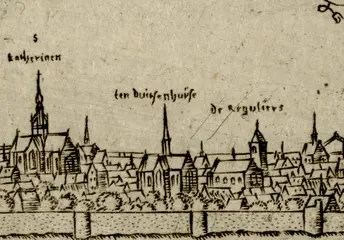 S
katherinen
ten Duitsenhuise
de Reguliers